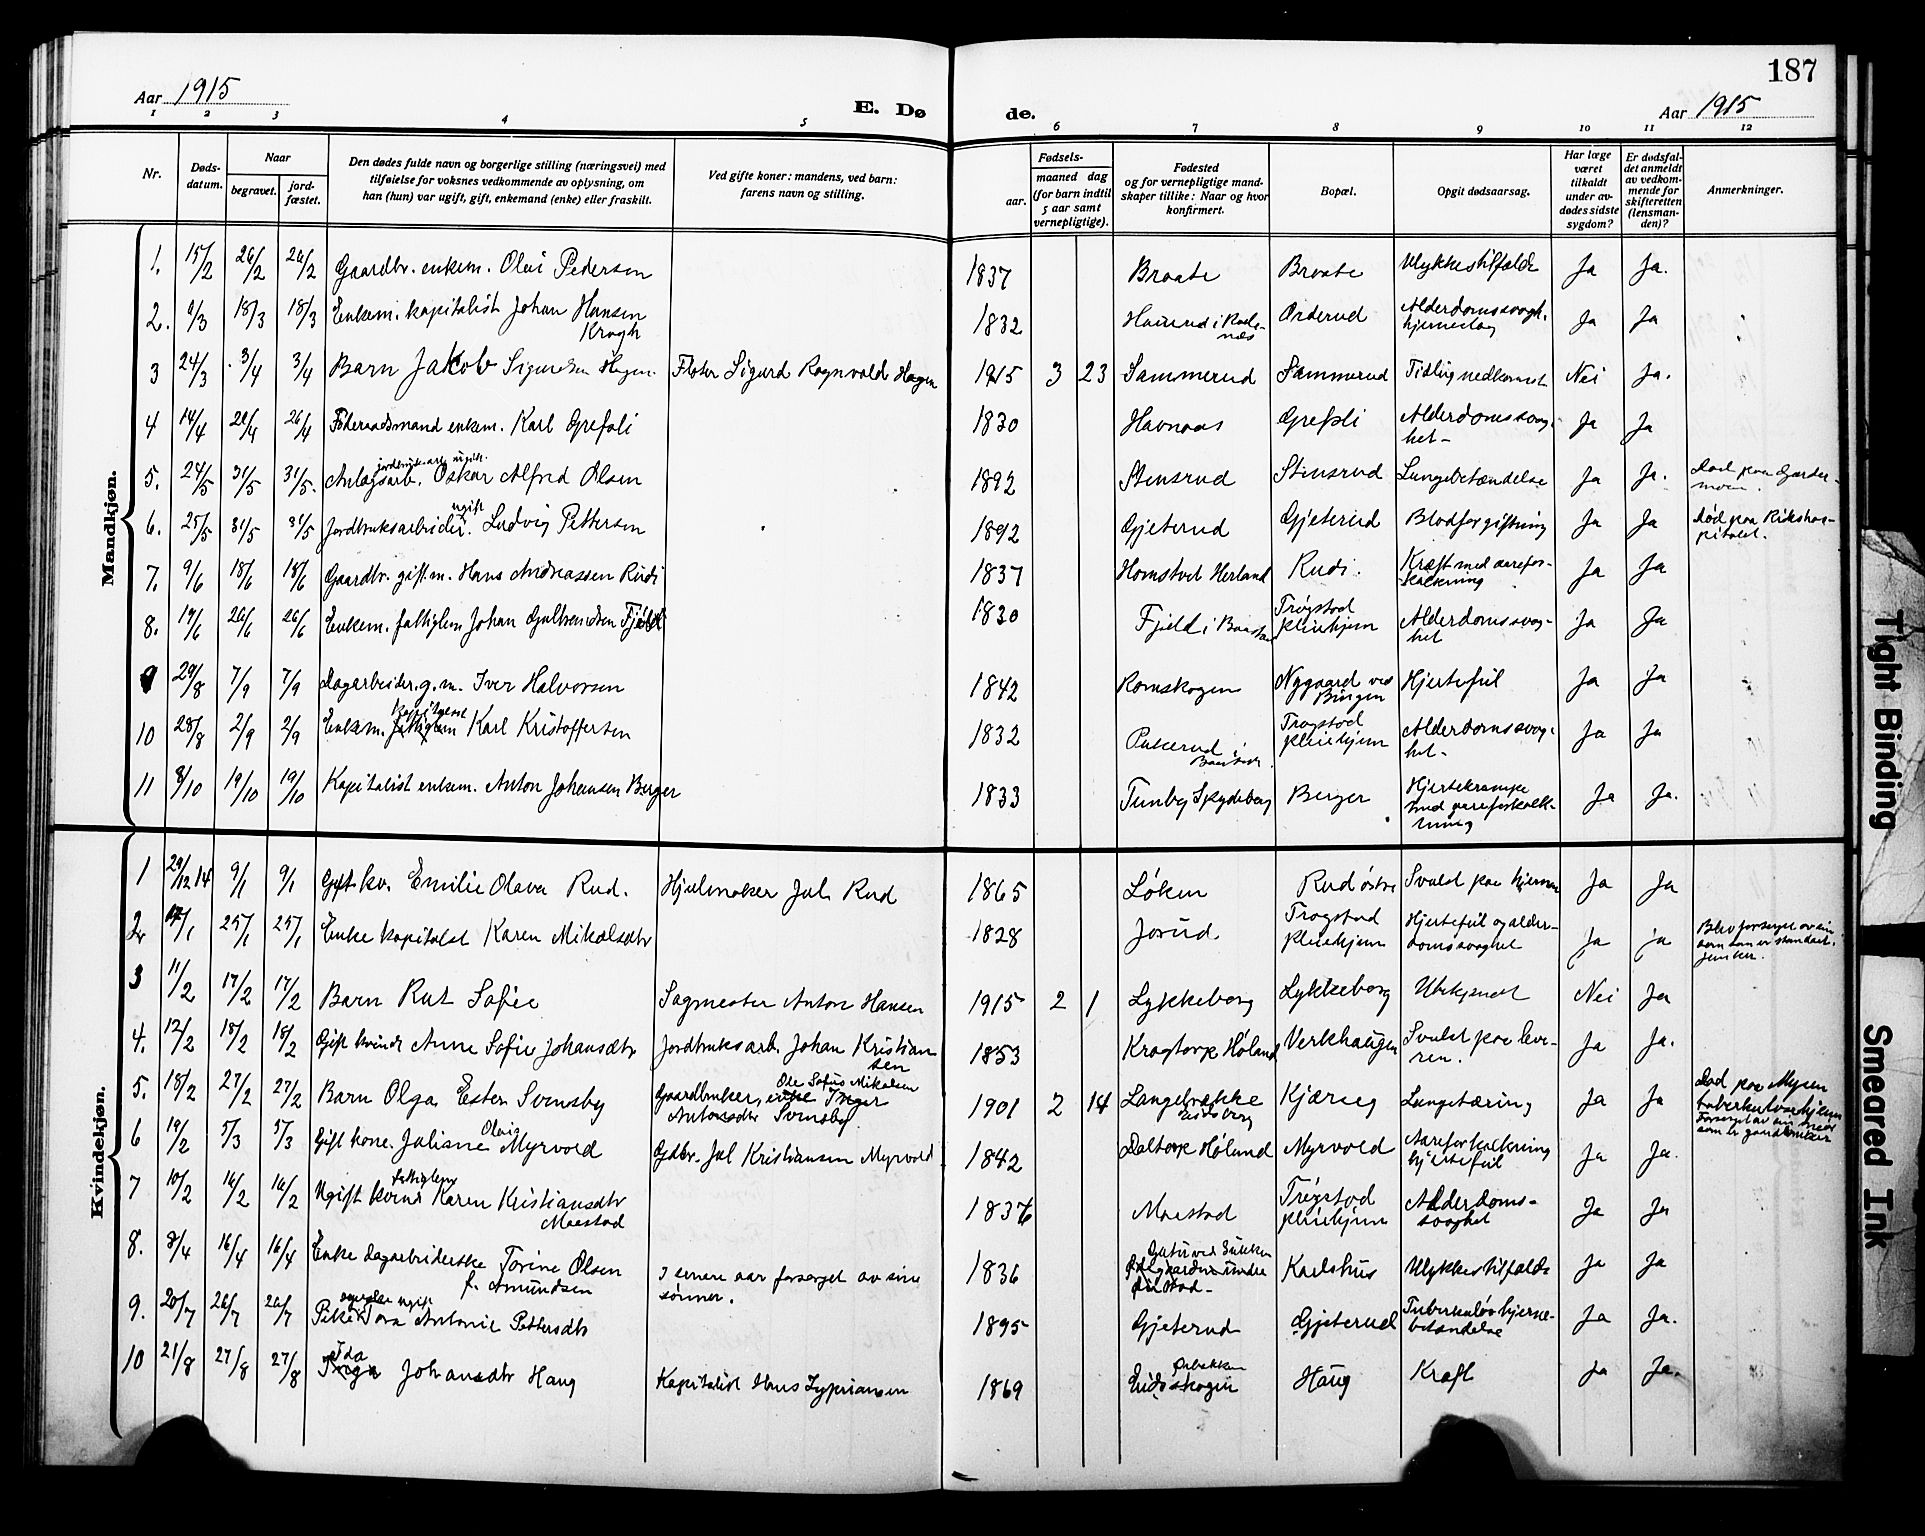 187
Aar 1915
E. Dø
de.
Aar 1915
1 2 3 4 5 6 7 8 9 10 11 12
Nr.
Døds-
datum.
Naar
begravet.
jord-
fæstet.
Den dødes fulde navn og borgerlige stilling (næringsvei) med
tilføielse for voksnes vedkommende av oplysning, om
han (hun) var ugift, gift, enkemand (enke) eller fraskilt.
Ved gifte koner: mandens, ved barn:
farens navn og stilling.
Fødsels-
aar.
maaned dag
(for barn indtil
5 aar samt
vernepligtige).
Fødested
og for vernepligtige mand-
skaper tillike: Naar og hvor
konfirmert.
Bopæl.
Opgit dødsaarsag.
Har læge
været
tilkaldt
under av-
dødes sidste
sygdom?
Er dødsfal-
det anmeldt
av vedkom-
mende for
skifteretten
(lensman-
den)?
Anmerkninger.
Mandkjøn.
1. 15/2 26/2 26/2 Gaardbr. enkem. Olai Pedersen 1837 Braate Braate Ulykkestilfælde Ja Ja.
2. 6/3 18/3 18/3 Enkem. kapitalist Johan Hansen
Krogh 1832 Orderud Alderdomssvagh.
Ja Ja
3 24/3 3/4 3/4 Barn Jakob Sigurdsen Hagen Fløter Sigurd Ragnvald Hagen 1915 3 23 Sammerud Sammerud Tidlig nedkomst Nei Ja.
4 14/4 26/4 26/4 Føderaadsmand enkem. Karl Grefsli 1830 Havnaas Grefsli Alderdomssvag-
het Ja Ja
5. 24/5 31/5 31/5. Anlægsarb. Oskar Alfred Olsen 1892 Stensrud Stensrud Lungebetændelse Ja Ja. Død paa Garder-
moen.
6. 25/5 31/5 31/5 Jordbruksarbeider. ugift Ludvig Pettersen 1892 Gjeterud Gjeterud Blodforgiftning Ja Ja Død paa Rikshos-
pitalet.
7. 9/6 18/6 18/6 Gaardbr. gift.m. Hans Andreassen Rudi 1837 Homstvet Herland Rudi. Kræft med aarefor-
kalkning Ja Ja
8. 19/6 26/6 26/6 Enkem. fattiglem Johan Gulbrandsen Fjeld 1830 Fjeld i Baastad Trøgstad
pleiehjem Alderdomssvag-
het Ja Ja
9 29/8 7/9 7/9 Dagarbeider. g.m. Iver Halvorsen 1842 Romskogen Nygaard ved
Bingen Hjertefeil Ja Ja
10 28/8 2/9 2/9 Enkem. Kapitalist fattiglem Karl Kristoffersen 1832 i
Baastad. Trøgstad
pleiehjem Alderdomssvag-
het. Ja Ja
11 8/10 19/10 19/10 Kapitalist enkem. Anton Johansen Berger 1833 Tunby Spydeberg Berger Hjertekrampe
med aareforkalk-
ning Ja Ja.
Kvindekjøn.
1 29/12 14 9/1 9/1 Gift kv. Emilie Olava Rud. Hjulmaker Jul. Rud 1865 Løken Rud østre Svulst paa hjernen Ja Ja
2. 25/1 25/1 Enke kapitalist Karen Mikalsdtr 1828 Jorud. Trøgstad
pleiehjem Hjertefeil og alder-
domssvaghet Ja Ja Blev forsørget av sin
søn som er
3 11/2 17/2 17/2 Barn Rut Sofie Sagmester Anton Hansen 1915 2 1 Lykkeborg Lykkeborg Ubekjendt Nei Ja
4. 12/2 18/2 18/2 Gift kvinde Anne Sofie Johansdtr Jordbruksarb. Johan Kristian
sen 1853 Kragtorp Høland Verkhaugen Svulst paa leve-
ren. Ja Ja.
5. 18/2 27/2 27/2 Barn Olga Ester Svensby Gaardbruker, Ole Sofus Mikalsen enke Inger
Antonsdtr Svensby 1901 2 14 Langebrække
Eidsberg Kjærug Lungetæring Ja Ja Død paa Mysen
tuberkulosehjem
Forsørget av sin mor
som er gaardbruker
6 19/2 5/3 5/3 Gift kone. Julisne Olava Myrvold Gdbr. Jul Kristiansen Myrvold 1842 Daltorp Høland Myrvold Aareforkalkning
hjertefeil Ja Ja.
7 10/2 16/2 16/2 Ugift kvinde fattiglem Karen Kristiansdtr
Maestad 1837 Maestad Trøgstad
pleiehjem Alderdoms-
svaghet Ja Ja
8. 8/4 16/4 16/4 Enke dagarbeiderske Torine Olsen
f. Amundsen I senere aar forsørget av sine
sønner. 1836 Karlshus Ulykkestilfælde Ja Ja
9. 20/7 26/7 26/7 Pike ugift Tora Antonie Pettersdtr 1895 Gjeterud Gjeterud Tuberkuløs hjerne-
betændelse Ja Ja.
10 21/8 27/8 27/8 Ida
Inga Johansdtr Haug Kapitalist Hans Zypriansen 1869 Ørbækken
Haug Kræft Ja Ja.
Tight Binding
Smeared Ink